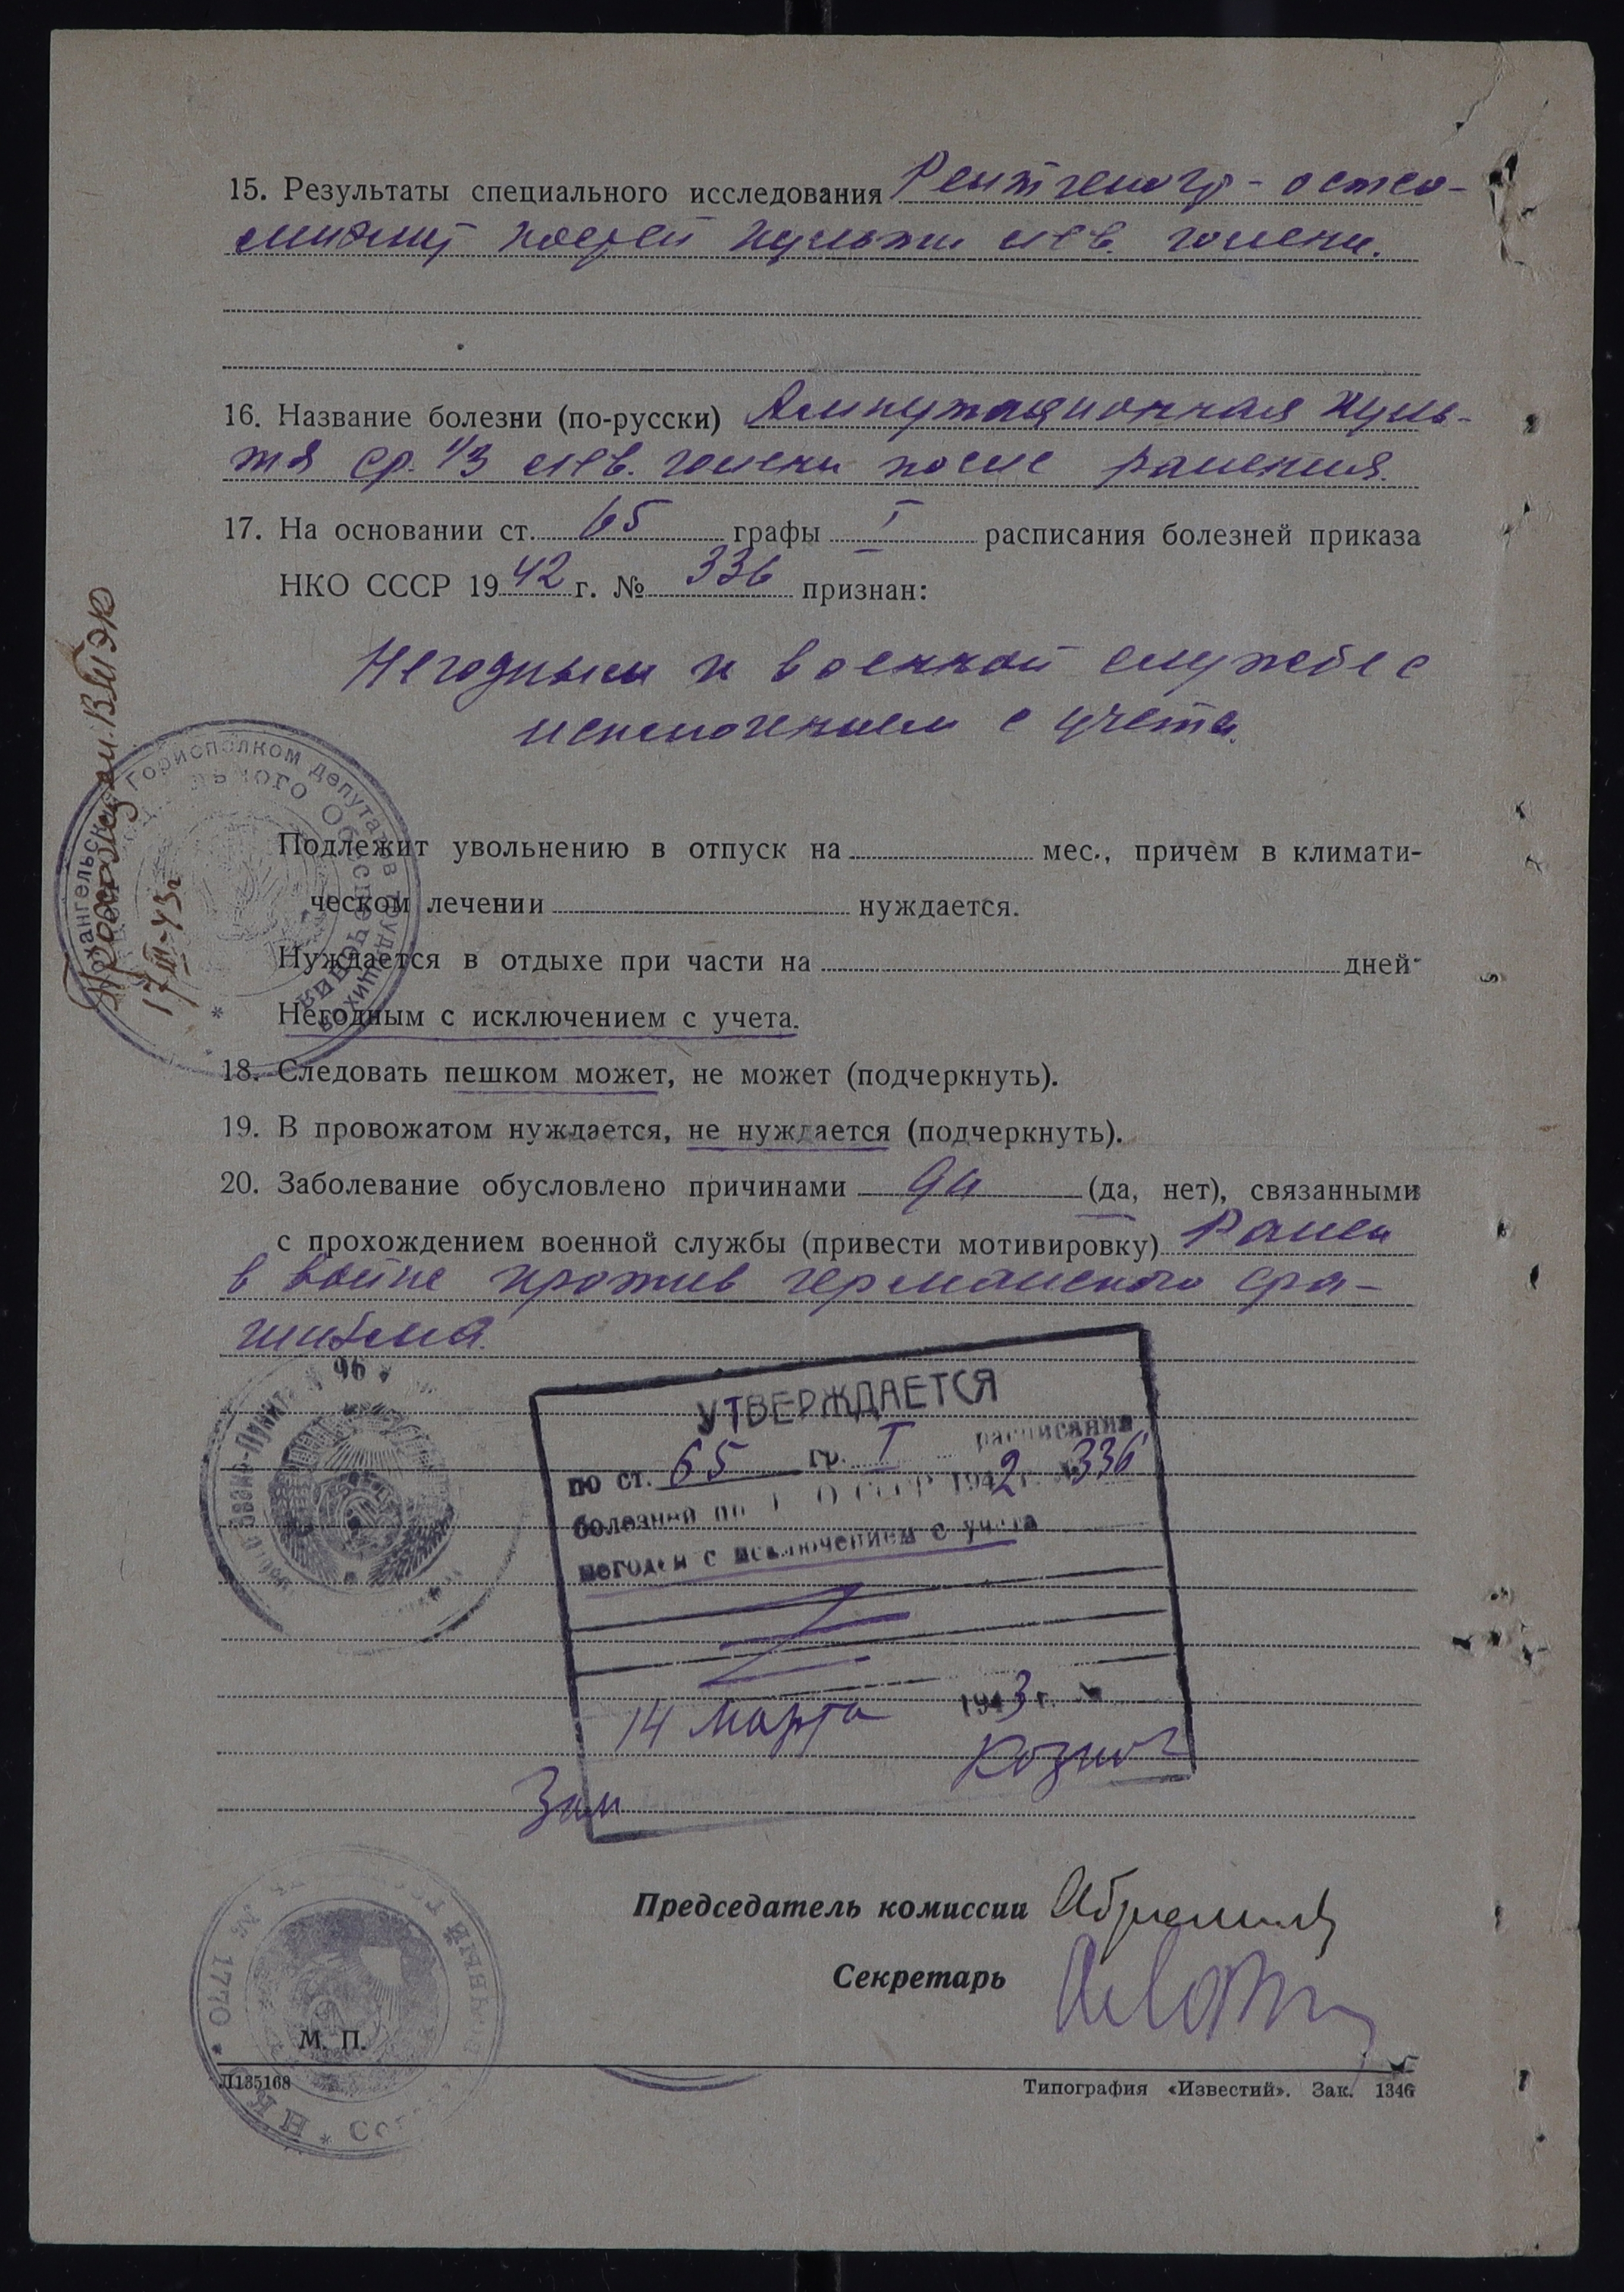 15. Результаты специального исследования Рентгеногр - остео-
миэлит костей культи лев. голени.
16. Название болезни (по-русски) Ампутационная куль-
тя ср. 1/3 лев. голени после ранения.
17. На основании ст. 65 графы I расписания болезней приказа
НКО СССР 1942 г. № 336 признан:
Негодным к военной службе с
исключением с учета.
Подлежит увольнению в отпуск на мес., причем в климати-
ческом лечении нуждается.
Нуждается в отдыхе при части на дней
Негодным с исключением с учета.
18. Следовать пешком может, не может (подчеркнуть).
19. В провожатом нуждается, не нуждается (подчеркнуть).
20. Заболевание обусловлено причинами да (да, нет), связанными
с прохождением военной службы (привести мотивировку) Ранен
в войне против германского фа-
шизма.
ВТЭК
17/III-43г
Горисполком депутатов трудящихся
96
УТВЕРЖДАЕТСЯ
по ст. 65 гр. I расписания
болезней 1942 г. № 336
негоден с исключением с учета
14 марта 1943 г. №
Зам
Председатель комиссии
Секретарь
№ 1770
НКО * СССР
М. П.
Л135168
Типография «Известий». Зак. 1346